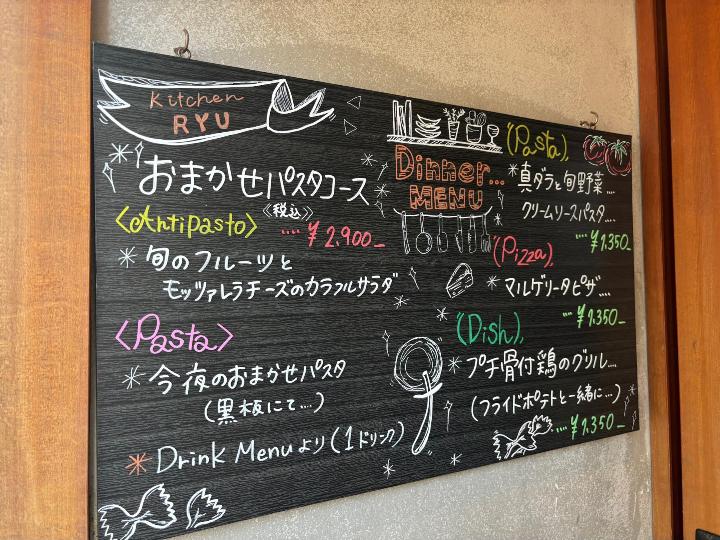 Kitchen
RYU
おまかせパスタコース
《税込》
.... ¥2.900_
<Antipasto>
* 旬のフルーツと
モッツァレラチーズのカラフルサラダ
<Pasta>
* 今夜のおまかせパスタ
(黒板にて....)
* Drink Menuより(1ドリンク)
Dinner...
MENU
(Pasta),
* 真ダラと旬野菜....
クリームソースパスタ....
.... ¥1.350_
(Pizza),
* マルゲリータピザ....
.... ¥1.350_
(Dish),
* プチ骨付鶏のグリル....
(フライドポテトと一緒に...)
.... ¥1.350_